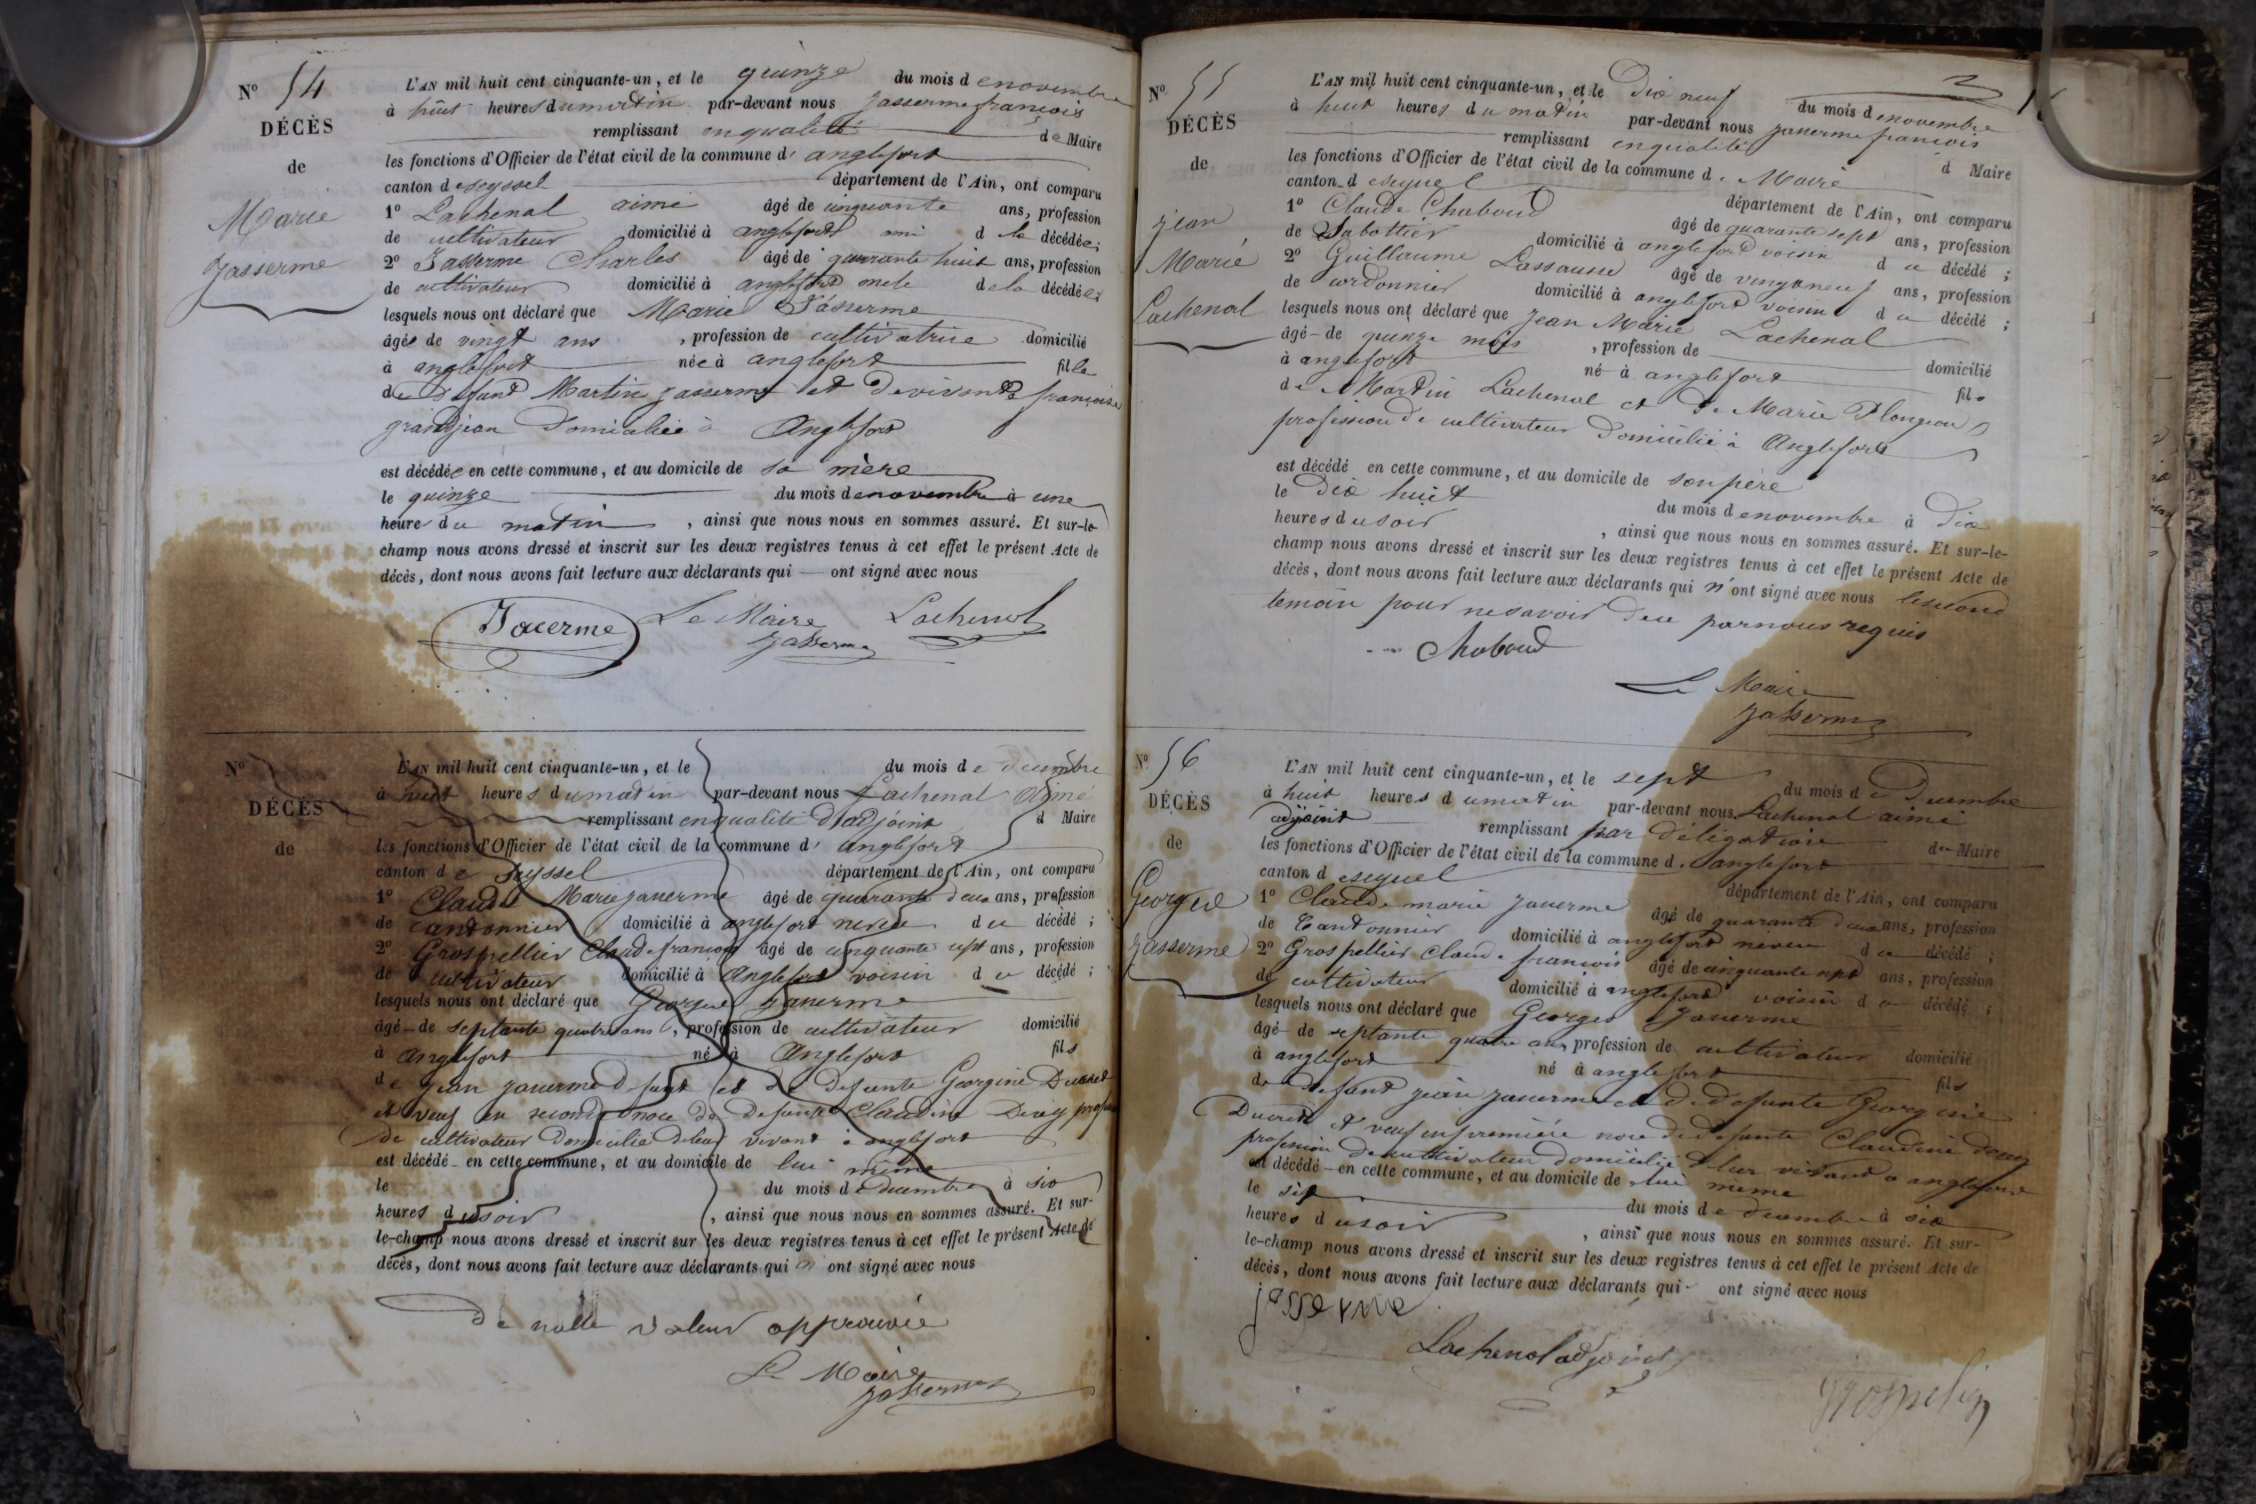 N° 54
DÉCÈS
de
Marie
Jasserme
L'AN mil huit cent cinquante-un, et le quinze du mois de novembre
à huit heures du matin par-devant nous Jasserme françois
remplissant en qualité de Maire
les fonctions d'Officier de l'état civil de la commune d' anglefort
canton de seyssel département de l'Ain, ont comparu
1° Lachenal aimé âgé de cinquante ans, profession
de cultivateur domicilié à anglefort ami de la décédée;
2° Jasserme Charles âgé de quarante huit ans, profession
de cultivateur domicilié à anglefort oncle de la décédée;
lesquels nous ont déclaré que Marie Jasserme
âgée de vingt ans , profession de cultivatrice domicilié
à anglefort née à anglefort fille
de defunt Martin Jasserme et de vivante françoise
grandjean Domiciliée à Anglefort
est décédée en cette commune, et au domicile de sa mère
le quinze du mois de novembre à une
heure du matin , ainsi que nous nous en sommes assuré. Et sur-le-
champ nous avons dressé et inscrit sur les deux registres tenus à cet effet le présent Acte de
décès, dont nous avons fait lecture aux déclarants qui ont signé avec nous
Jacerme Le Maire Lachenal
Jasserme
N°
DÉCÈS
de
L'AN mil huit cent cinquante-un, et le du mois de decembre
à huit heures du matin par-devant nous Lachenal Aimé
remplissant en qualité d'adjoint d Maire
les fonctions d'Officier de l'état civil de la commune d' anglefort
canton de Seyssel département de l'Ain, ont comparu
1° Claude Marie Jasserme âgé de quarante deux ans, profession
de cantonnier domicilié à anglefort neveu du décédé ;
2° Grospellier Claude françois âgé de cinquante sept ans, profession
de cultivateur domicilié à Anglefort voisin du décédé ;
lesquels nous ont déclaré que George Jasserme
âgé de septante quatre ans , profession de cultivateur domicilié
à Anglefort né à Anglefort fils
de jean Jasserme defunt et de defunte Georgine Ducret
et veuf en seconde noce de defunte Claudine
de cultivateur Domicilié de leur vivant à anglefort
est décédé en cette commune, et au domicile de lui même
le du mois de decembre à six
heures du soir , ainsi que nous nous en sommes assuré. Et sur-
le-champ nous avons dressé et inscrit sur les deux registres tenus à cet effet le présent Acte de
décès, dont nous avons fait lecture aux déclarants qui ont signé avec nous
De nulle valeur approuvée
Le Maire
Jasserme
N° 55
DÉCÈS
de
jean
Marie
Lachenal
L'AN mil huit cent cinquante-un, et le Dix neuf du mois de novembre
à huit heures du matin par-devant nous Jasserme françois
remplissant en qualité d Maire
les fonctions d'Officier de l'état civil de la commune de Maire
canton d département de l'Ain, ont comparu
1° Claude Chaboud âgé de quarante sept ans, profession
de Sabottier domicilié à anglefort voisin du décédé ;
2° Guillaume Lassausse âgé de vingt neuf ans, profession
de cordonnier domicilié à anglefort voisin du décédé ;
lesquels nous ont déclaré que Jean Marie Lachenal
âgé de quinze mois , profession de domicilié
à anglefort né à anglefort fils
de Martin Lachenal et de Marie
profession de cultivateur Domicilié à Anglefort
est décédé en cette commune, et au domicile de son père
le Dix huit du mois de novembre à Dix
heures du soir , ainsi que nous nous en sommes assuré. Et sur-le-
champ nous avons dressé et inscrit sur les deux registres tenus à cet effet le présent Acte de
décès, dont nous avons fait lecture aux déclarants qui n'ont signé avec nous le second
temoin pour ne savoir de ce par nous requis
Chaboud
Le Maire
Jasserme
N° 56
DÉCÈS
de
George
Jasserme
L'AN mil huit cent cinquante-un, et le sept du mois de Decembre
à huit heures du matin par-devant nous Lachenal aimé
adjoint remplissant par délégation du Maire
les fonctions d'Officier de l'état civil de la commune d. anglefort
canton d département de l'Ain, ont comparu
1° Claude marie Jasserme âgé de quarante deux ans, profession
de Cantonnier domicilié à anglefort neveu du décédé ;
2° Grospellier Claude françois âgé de cinquante sept ans, profession
de cultivateur domicilié à anglefort voisin du décédé ;
lesquels nous ont déclaré que George Jasserme
âgé de septante quatre ans, profession de cultivateur domicilié
à anglefort né à anglefort fils
de defunt jean Jasserme et de defunte Georgine
Ducret et veuf en première noce de defunte Claudine
profession de cultivateur domicilié de leur vivant à anglefort
est décédé en cette commune, et au domicile de lui meme
le six du mois de decembre à six
heures du soir , ainsi que nous nous en sommes assuré. Et sur-
le-champ nous avons dressé et inscrit sur les deux registres tenus à cet effet le présent Acte de
décès, dont nous avons fait lecture aux déclarants qui ont signé avec nous
jasserme
Lachenal adjoint